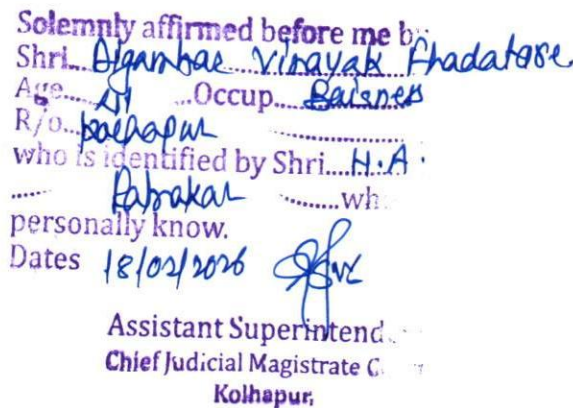 Solemnly affirmed before me b
Shri... Digambar Vinayak Phadatare
Age... ...Occup... Baisness
R/o... Kolhapur
who is identified by Shri... H.A.
Patrakar ...wh
personally know.
Dates 18/02/2026
Assistant Superintend
Chief Judicial Magistrate C
Kolhapur,